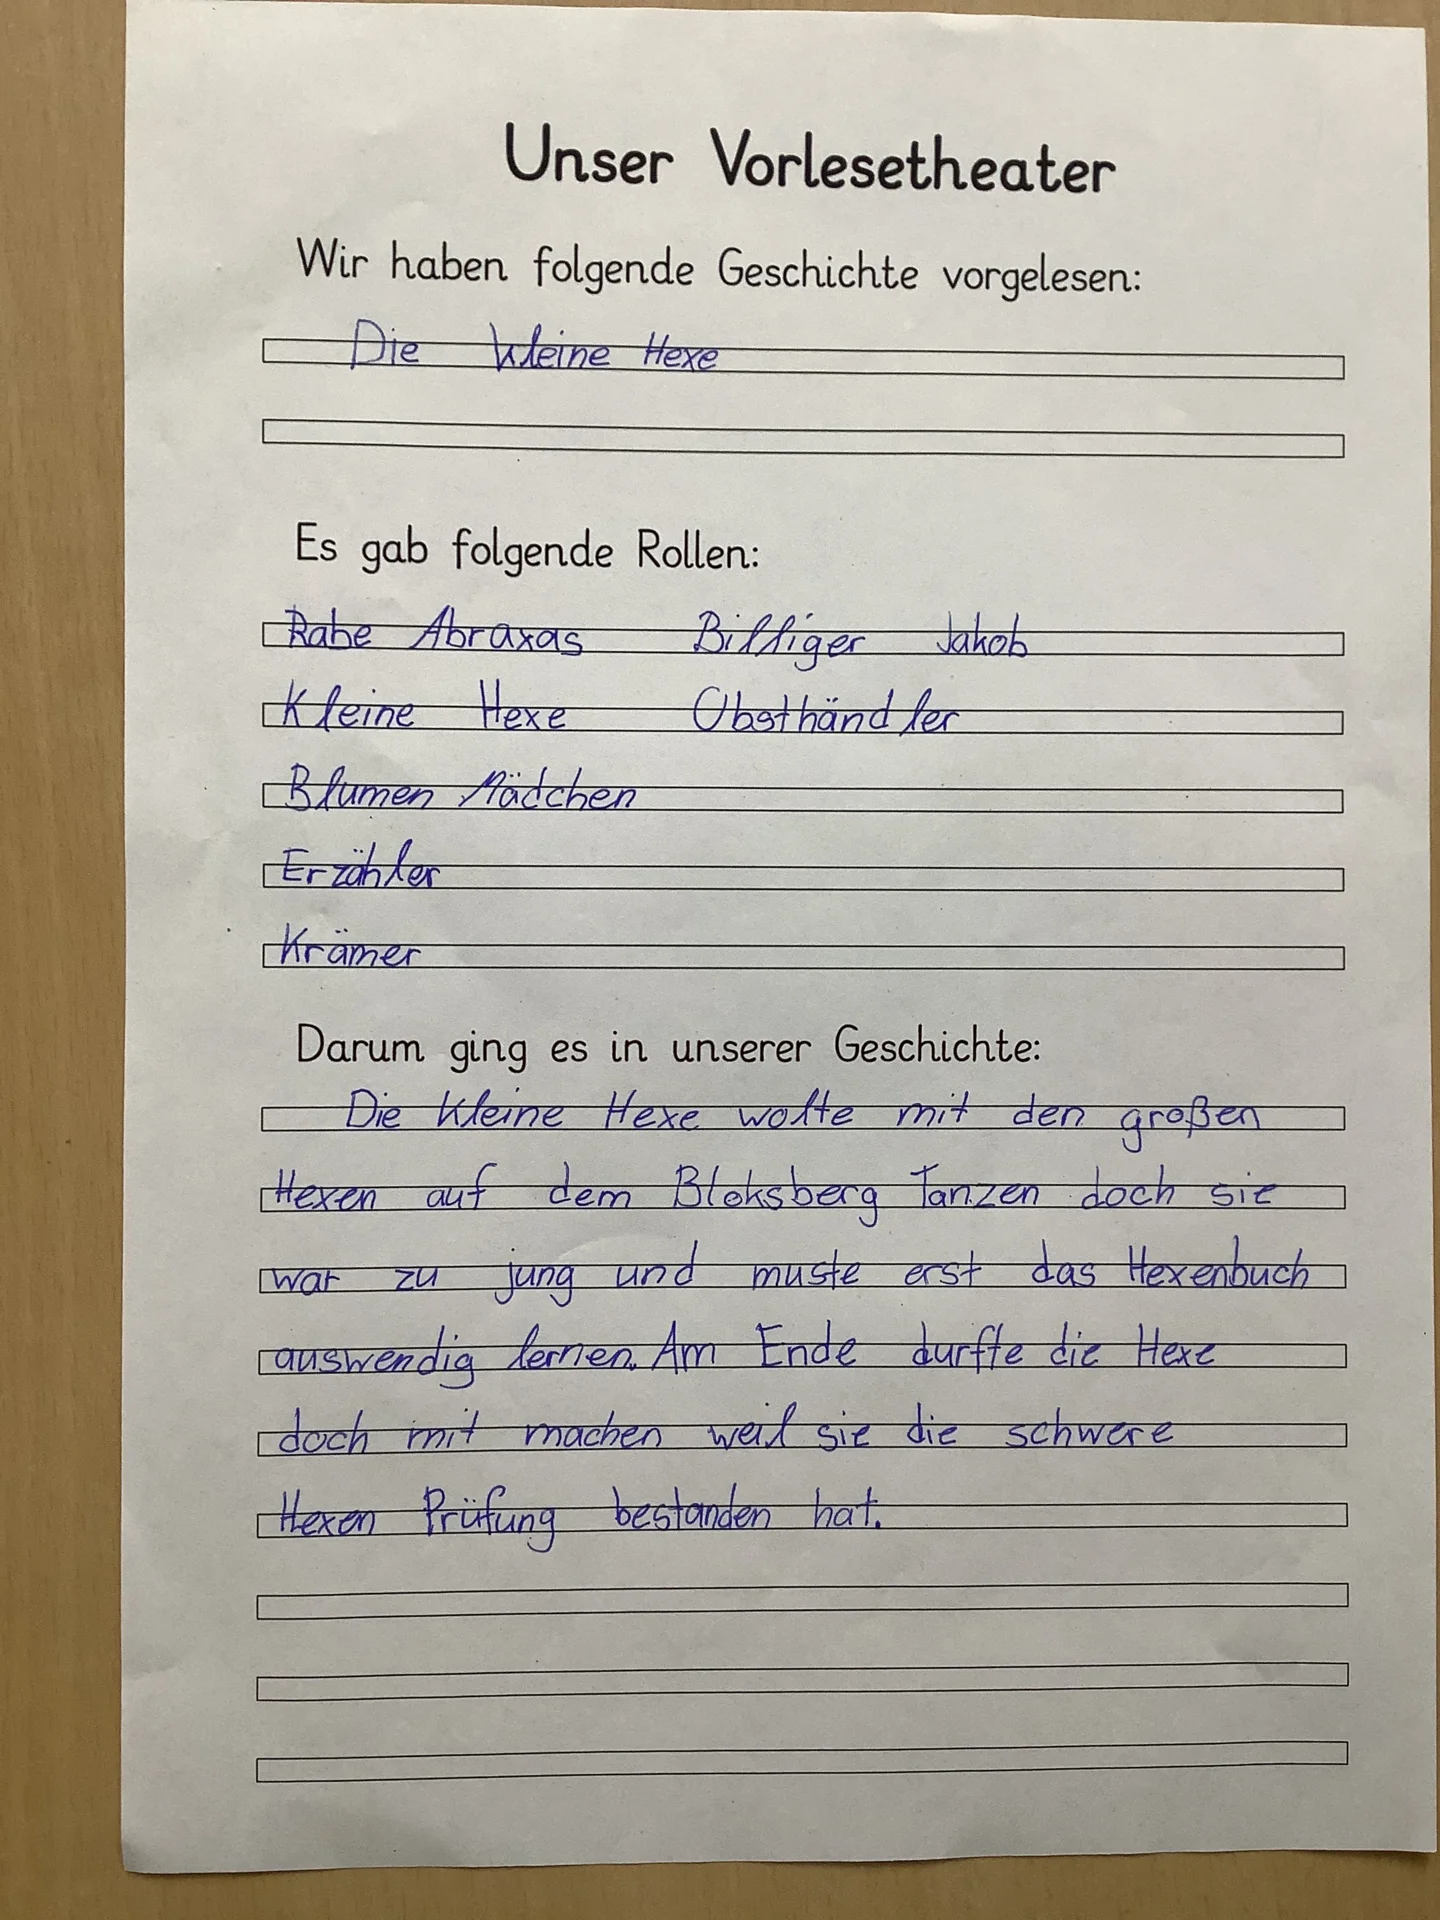 Unser Vorlesetheater
Wir haben folgende Geschichte vorgelesen:
Die kleine Hexe
Es gab folgende Rollen:
Rabe Abraxas Billiger Jakob
Kleine Hexe Obsthändler
Blumen Mädchen
Erzähler
Krämer
Darum ging es in unserer Geschichte:
Die kleine Hexe wolte mit den großen
Hexen auf dem Bloksberg Tanzen doch sie
war zu jung und muste erst das Hexenbuch
auswendig lernen. Am Ende durfte die Hexe
doch mit machen weil sie die schwere
Hexen Prüfung bestanden hat.